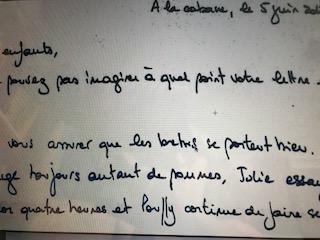 A la cabane, le 5 juin
enfants,
pouvez pas imaginer à quel point votre lettre
vous assurer que les brebis se portent bien.
toujours autant de pommes, Julie
quatre heures et continue de faire